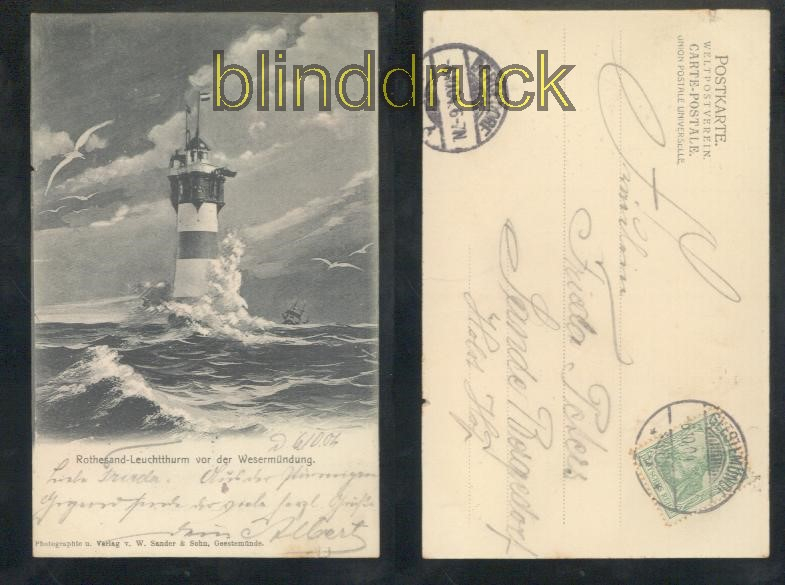 blinddruck
d 6/10.04
Rothesand-Leuchtthurm vor der Wesermündung.
Liebe Frieda. Aus der stürmigen
Gegend sende dir viele herzl. Grüße
dein Albert
Photographie u. Verlag v. W. Sander & Sohn, Geestemünde.
POSTKARTE.
WELTPOSTVEREIN.
CARTE-POSTALE.
UNION POSTALE UNIVERSELLE.
Fräulein
Frieda
Sande Bergedorf
GEESTEMÜNDE
6-7N.